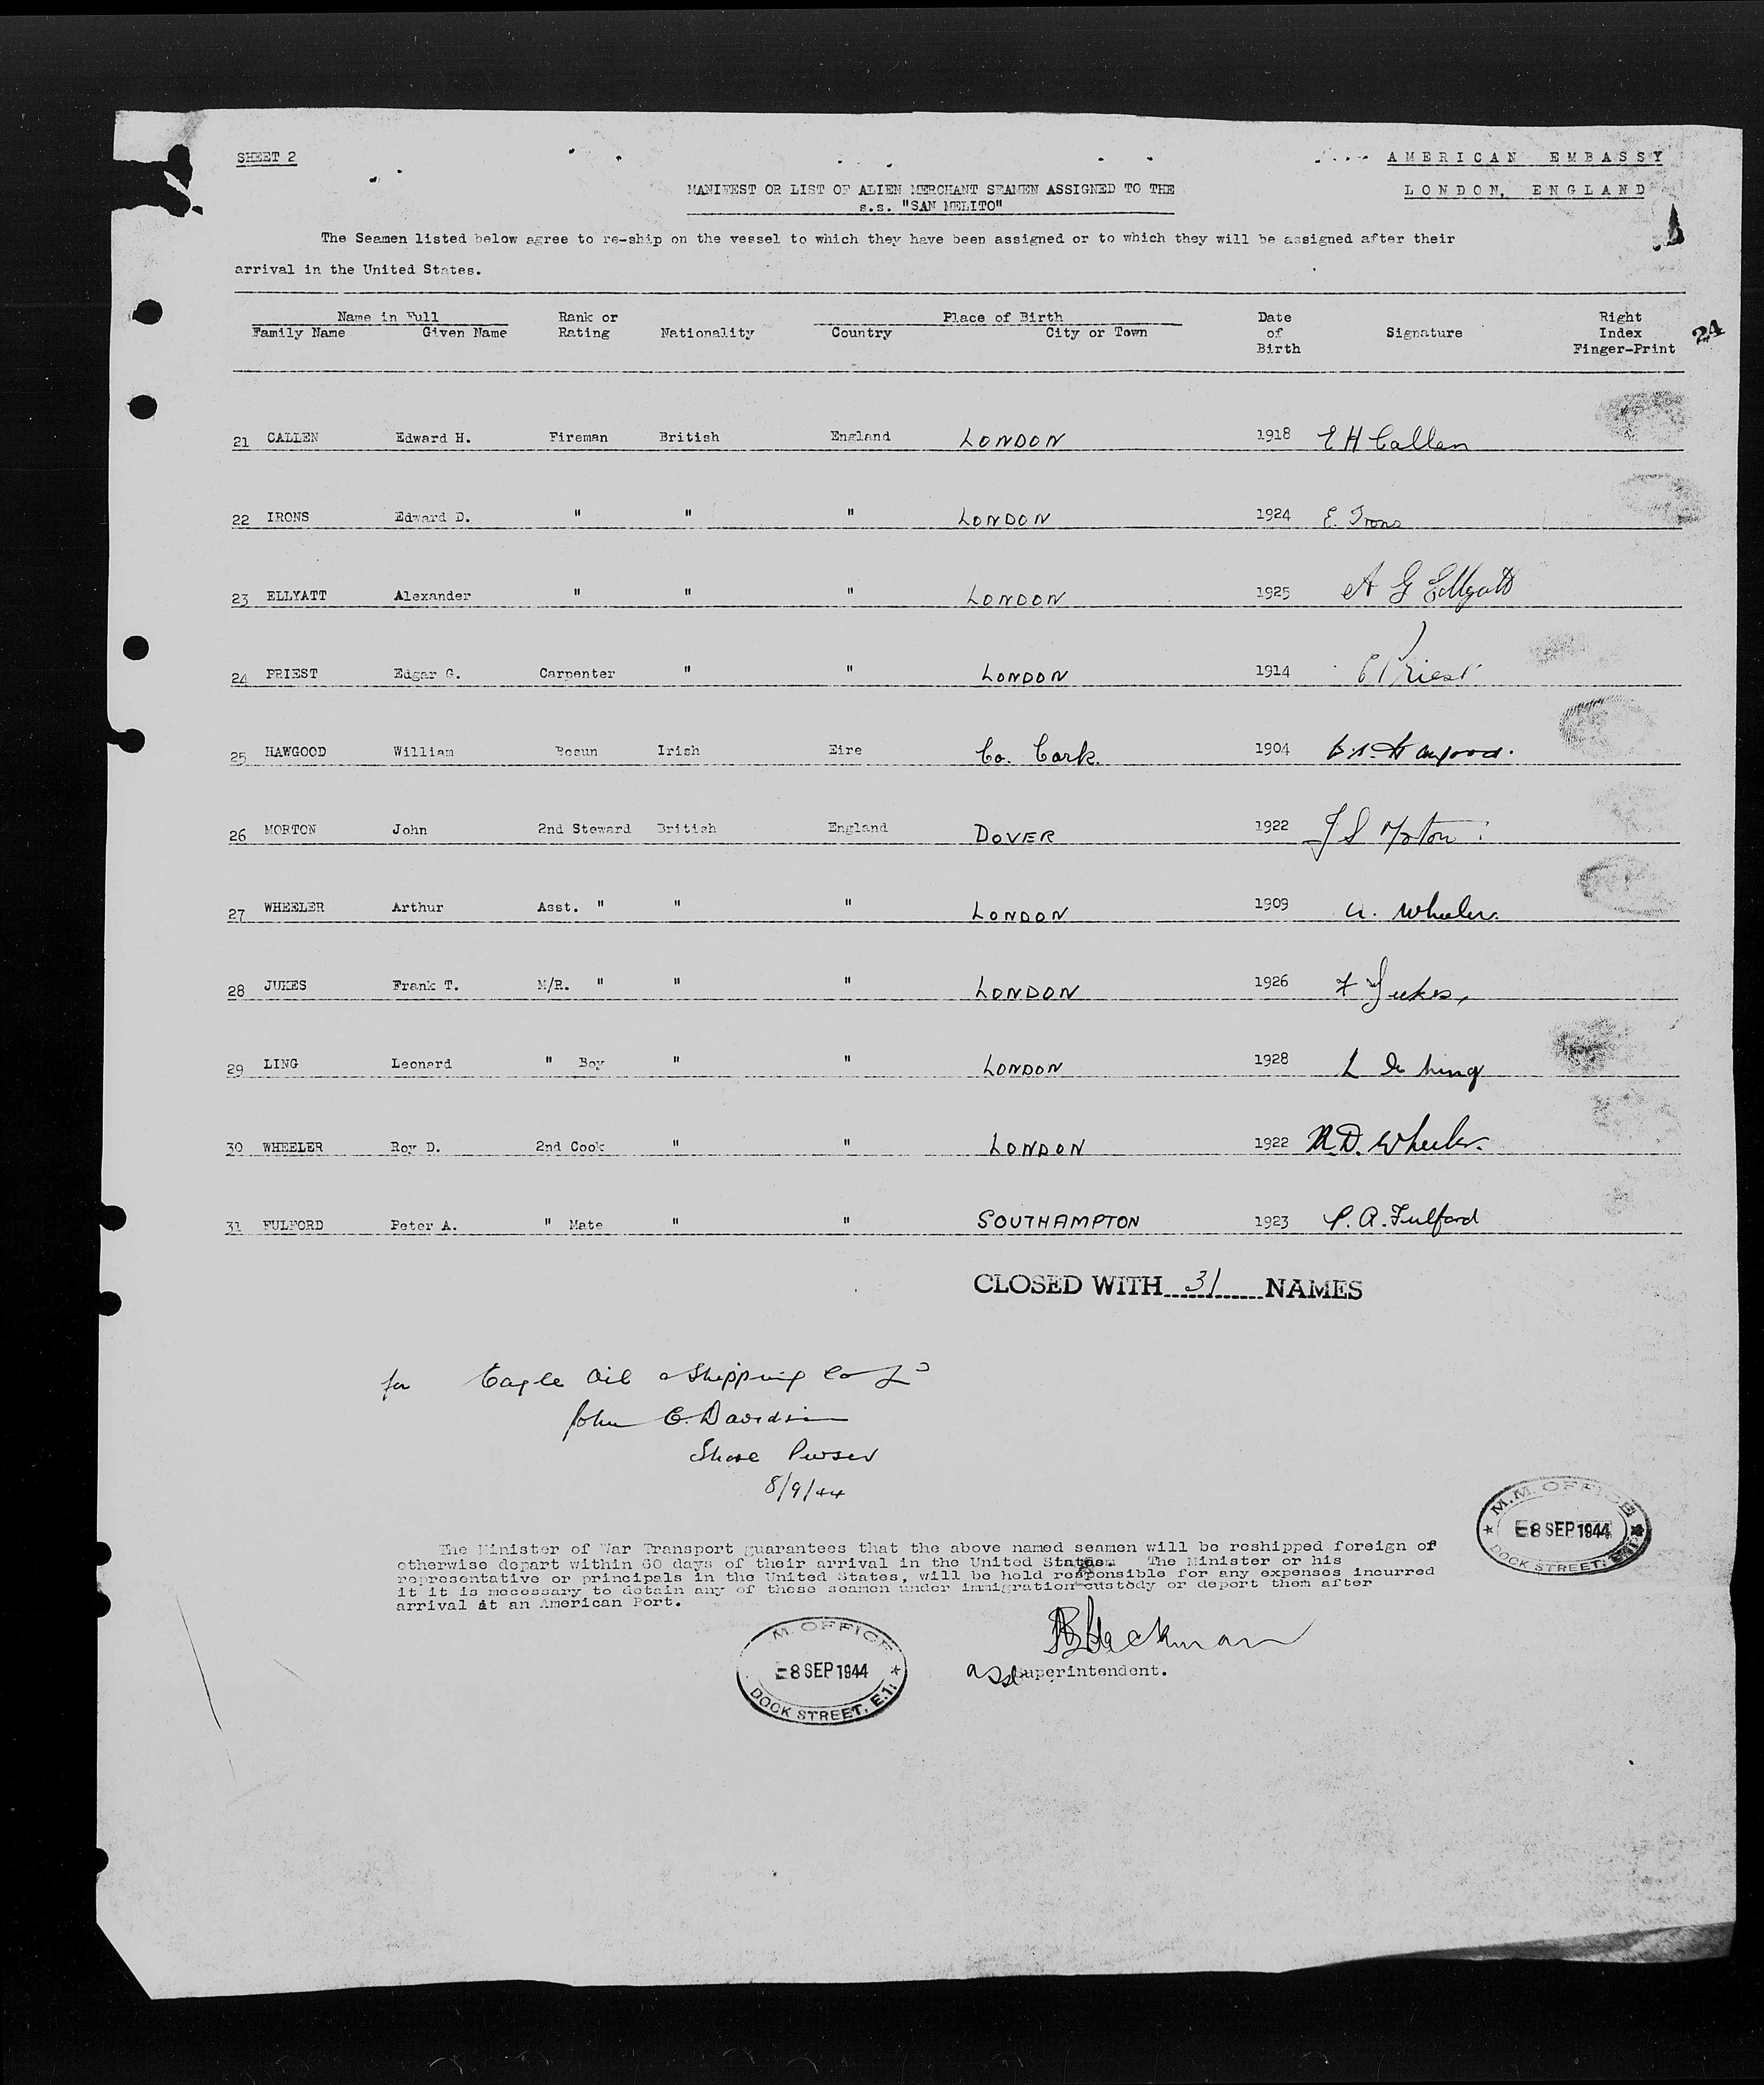 SHEET 2
AMERICAN EMBASSY
LONDON, ENGLAND
MANIFEST OR LIST OF ALIEN MERCHANT SEAMEN ASSIGNED TO THE
s.s. "SAN MELITO"
The Seamen listed below agree to re-ship on the vessel to which they have been assigned or to which they will be assigned after their
arrival in the United States.
Name in Full Rank or Place of Birth Date Right
Family Name Given Name Rating Nationality Country City or Town of Signature Index
Birth Finger-Print
24
21 CALLEN Edward H. Fireman British England LONDON 1918 E H Callen
22 IRONS Edward D. " " " LONDON 1924 E. Irons
23 ELLYATT Alexander " " " LONDON 1925 A G Ellyatt
24 PRIEST Edgar G. Carpenter " " LONDON 1914 E Priest
25 HAWGOOD William Bosun Irish Eire Co. Cork. 1904 Hawgood.
26 MORTON John 2nd Steward British England DOVER 1922 J S Morton
27 WHEELER Arthur Asst. " " " LONDON 1909 A. Wheeler.
28 JUKES Frank T. M/R. " " " LONDON 1926 F Jukes,
29 LING Leonard " Boy " " LONDON 1928 L Ling
30 WHEELER Roy D. 2nd Cook " " LONDON 1922 R.D. Wheeler.
31 FULFORD Peter A. " Mate " " SOUTHAMPTON 1923 P. A. Fulford
CLOSED WITH 31 NAMES
for Eagle Oil & Shipping Co Ld
John C. Davidson
Shore Purser
8/9/44
M.M. OFFICE
8 SEP 1944
DOCK STREET, E.1.
The Minister of War Transport guarantees that the above named seamen will be reshipped foreign of
otherwise depart within 60 days of their arrival in the United States. The Minister or his
representative or principals in the United States, will be held responsible for any expenses incurred
it it is mecessary to detain any of these seamen under immigration custody or deport them after
arrival at an American Port.
M. OFFICE
8 SEP 1944
DOCK STREET, E.1.
Blackman
asst Superintendent.